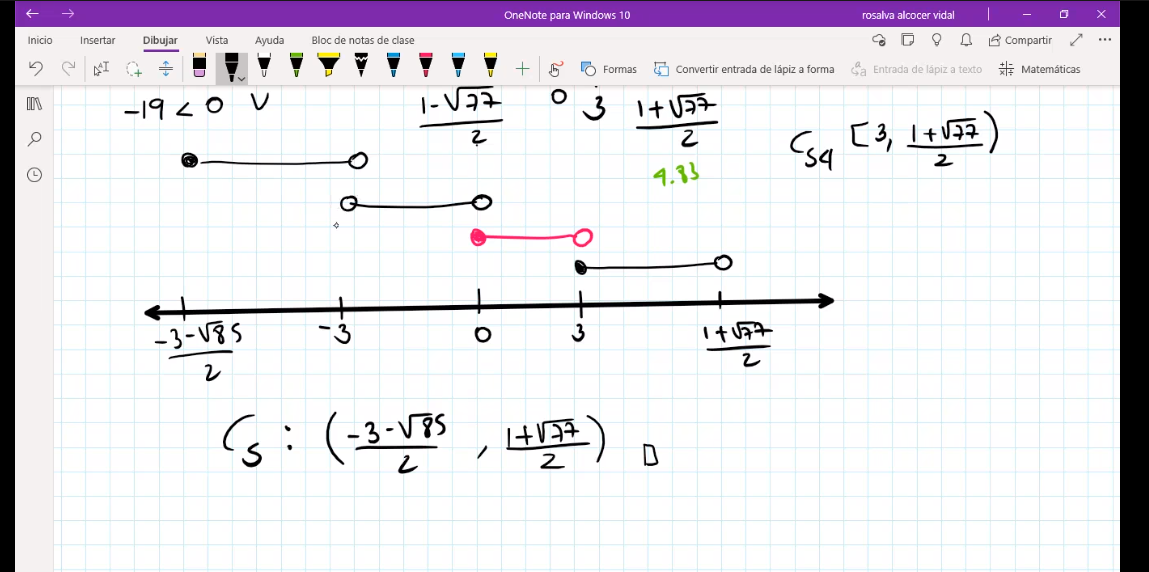 OneNote para Windows 10
rosalva alcocer vidal
Inicio Insertar Dibujar Vista Ayuda Bloc de notas de clase Compartir
Formas Convertir entrada de lápiz a forma Entrada de lápiz a texto Matemáticas
-19 < 0 V
1-√77/2 0 3 1+√77/2
4.83
CS4 [3, 1+√77/2)
-3-√85/2 -3 0 3 1+√77/2
CS : (-3-√85/2 , 1+√77/2)